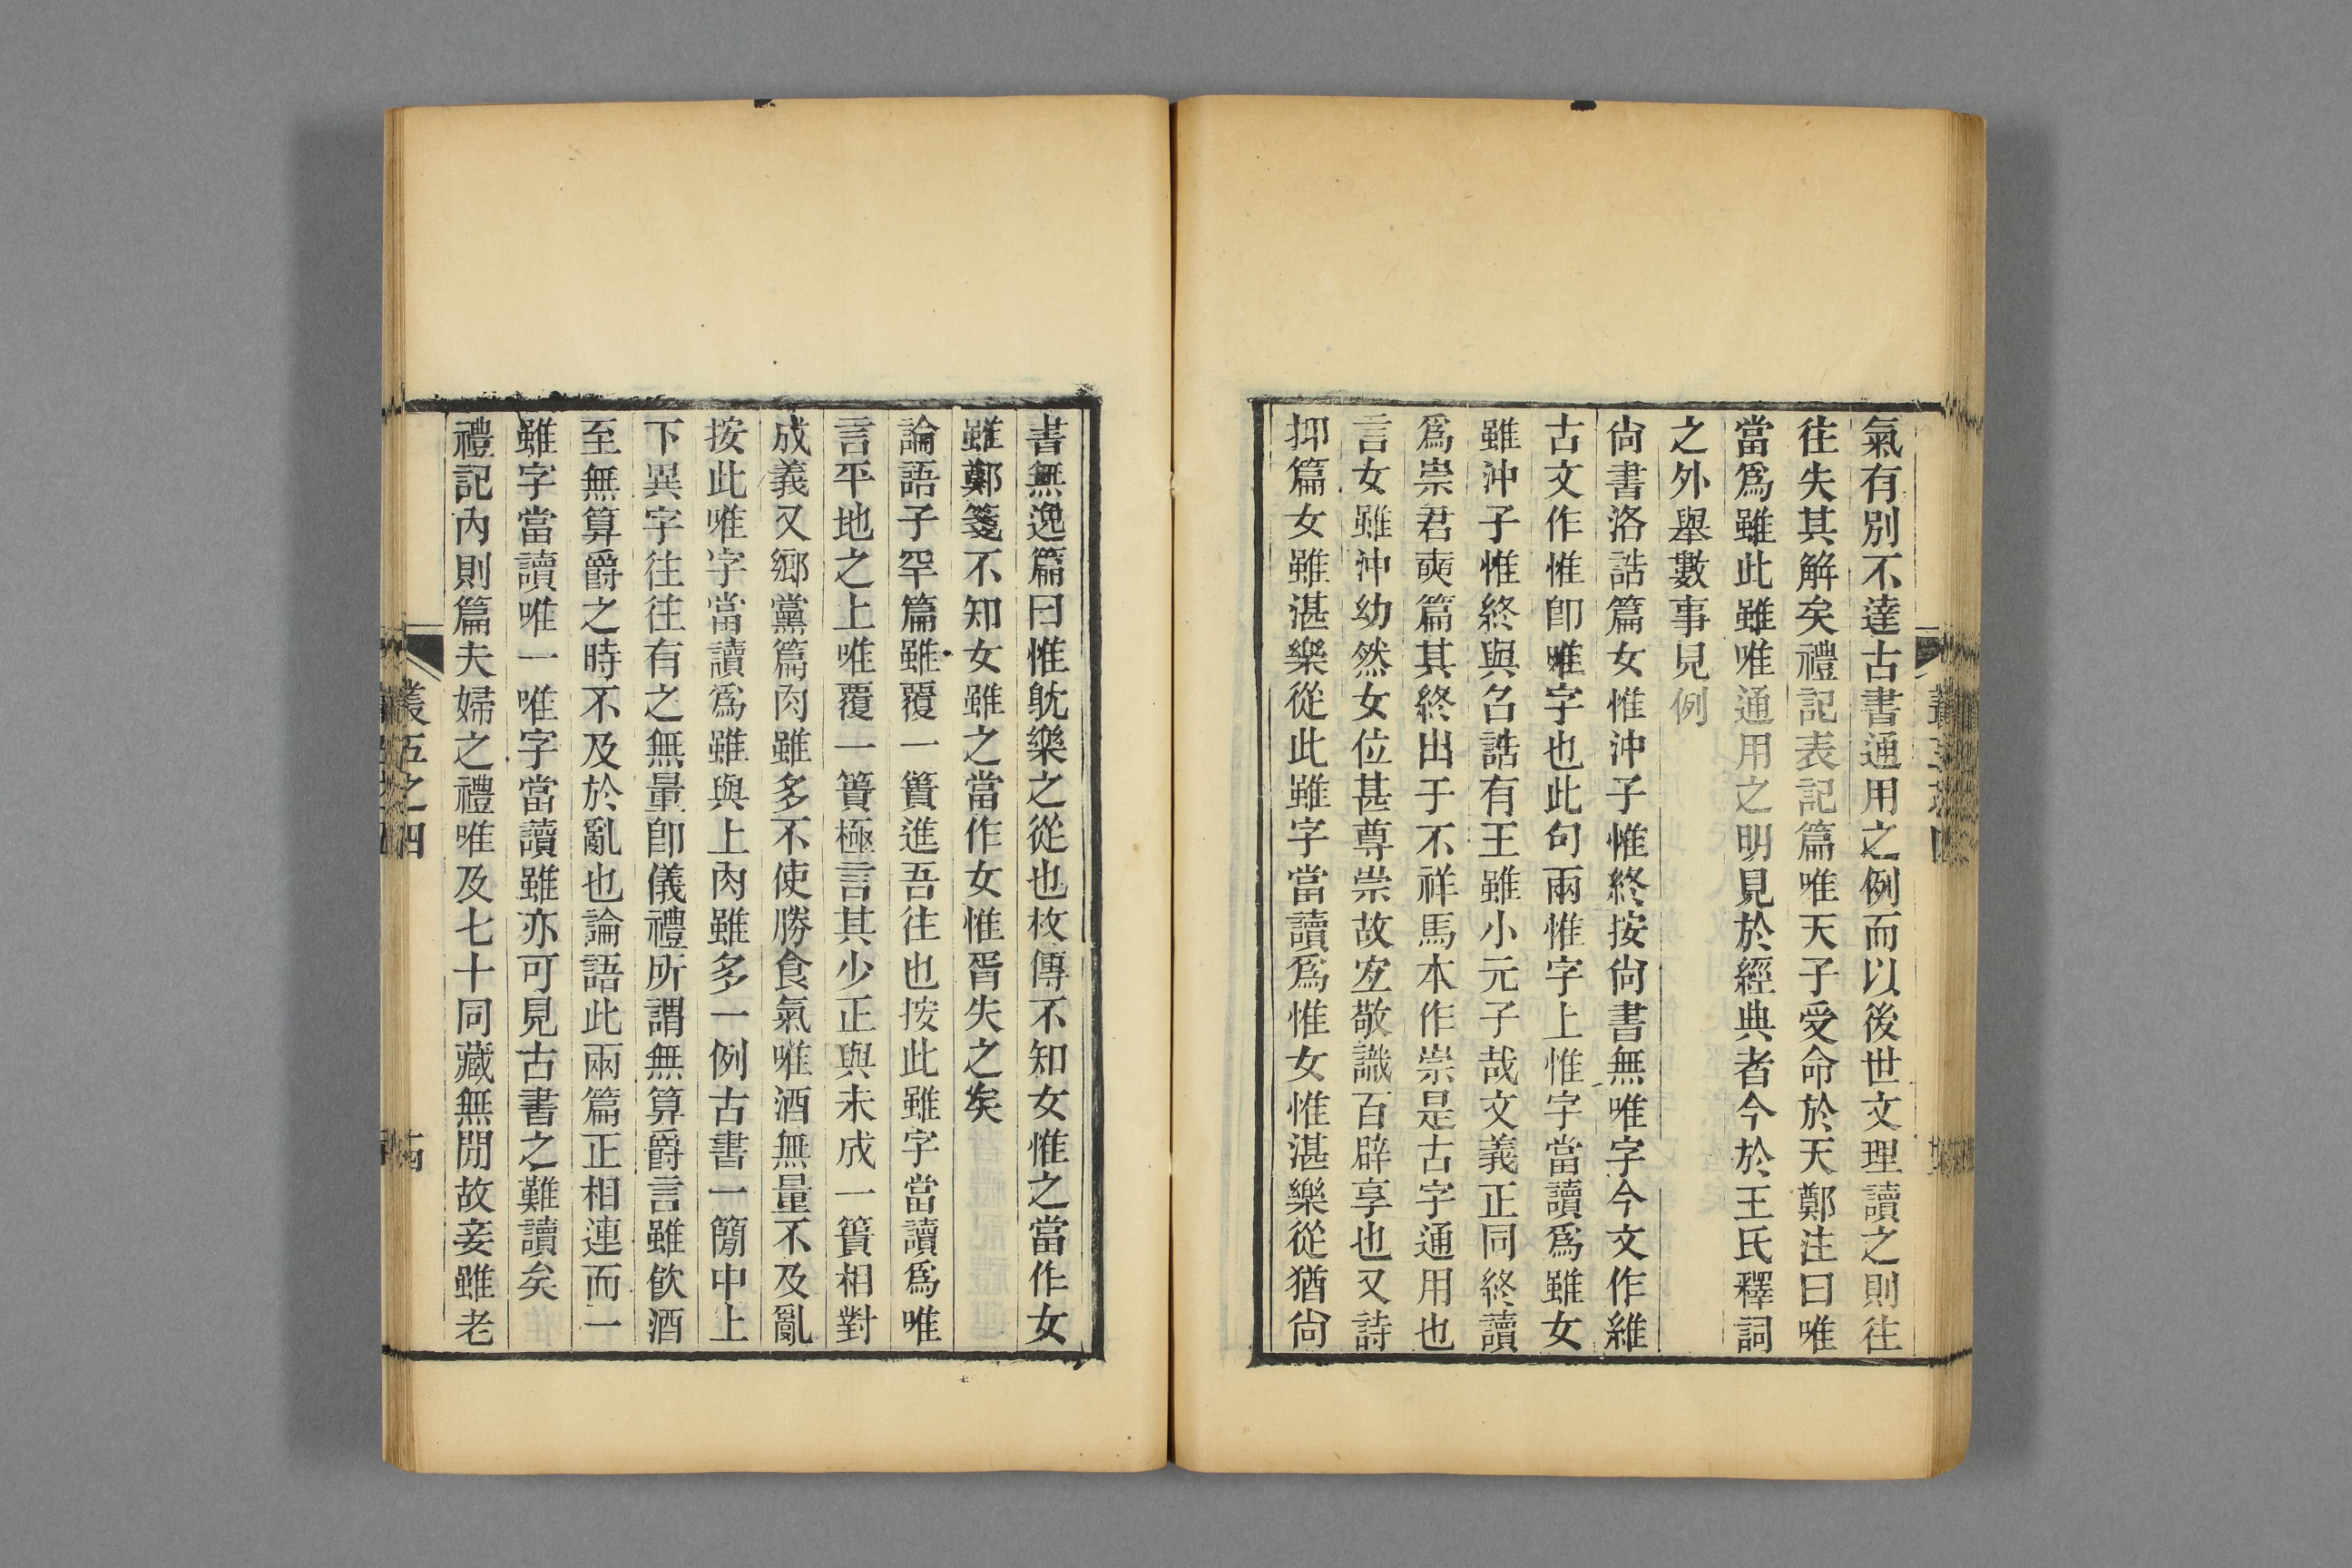 氣有別不達古書通用之例而以後世文理讀之則往
往失其解矣禮記表記篇唯天子受命於天鄭注曰唯
當爲雖此雖唯通用之明見於經典者今於王氏釋詞
之外舉數事見例
尙書洛誥篇女惟沖子惟終按尙書無唯字今文作維
古文作惟卽唯字也此句兩惟字上惟字當讀爲雖女
雖沖子惟終與召誥有王雖小元子哉文義正同終讀
爲崇君奭篇其終出于不祥馬本作崇是古字通用也
言女雖沖幼然女位甚尊崇故宜敬識百辟享也又詩
抑篇女雖湛樂從此雖字當讀爲惟女惟湛樂從猶尙
書無逸篇曰惟躭樂之從也枚傳不知女惟之當作女
雖鄭箋不知女雖之當作女惟胥失之矣
論語子罕篇雖覆一簣進吾往也按此雖字當讀爲唯
言平地之上唯覆一簣極言其少正與未成一簣相對
成義又鄉黨篇肉雖多不使勝食氣唯酒無量不及亂
按此唯字當讀爲雖與上肉雖多一例古書一簡中上
下異字往往有之無量卽儀禮所謂無算爵言雖飮酒
至無算爵之時不及於亂也論語此兩篇正相連而一
雖字當讀唯一唯字當讀雖亦可見古書之難讀矣
禮記內則篇夫婦之禮唯及七十同藏無閒故妾雖老
叢五之四